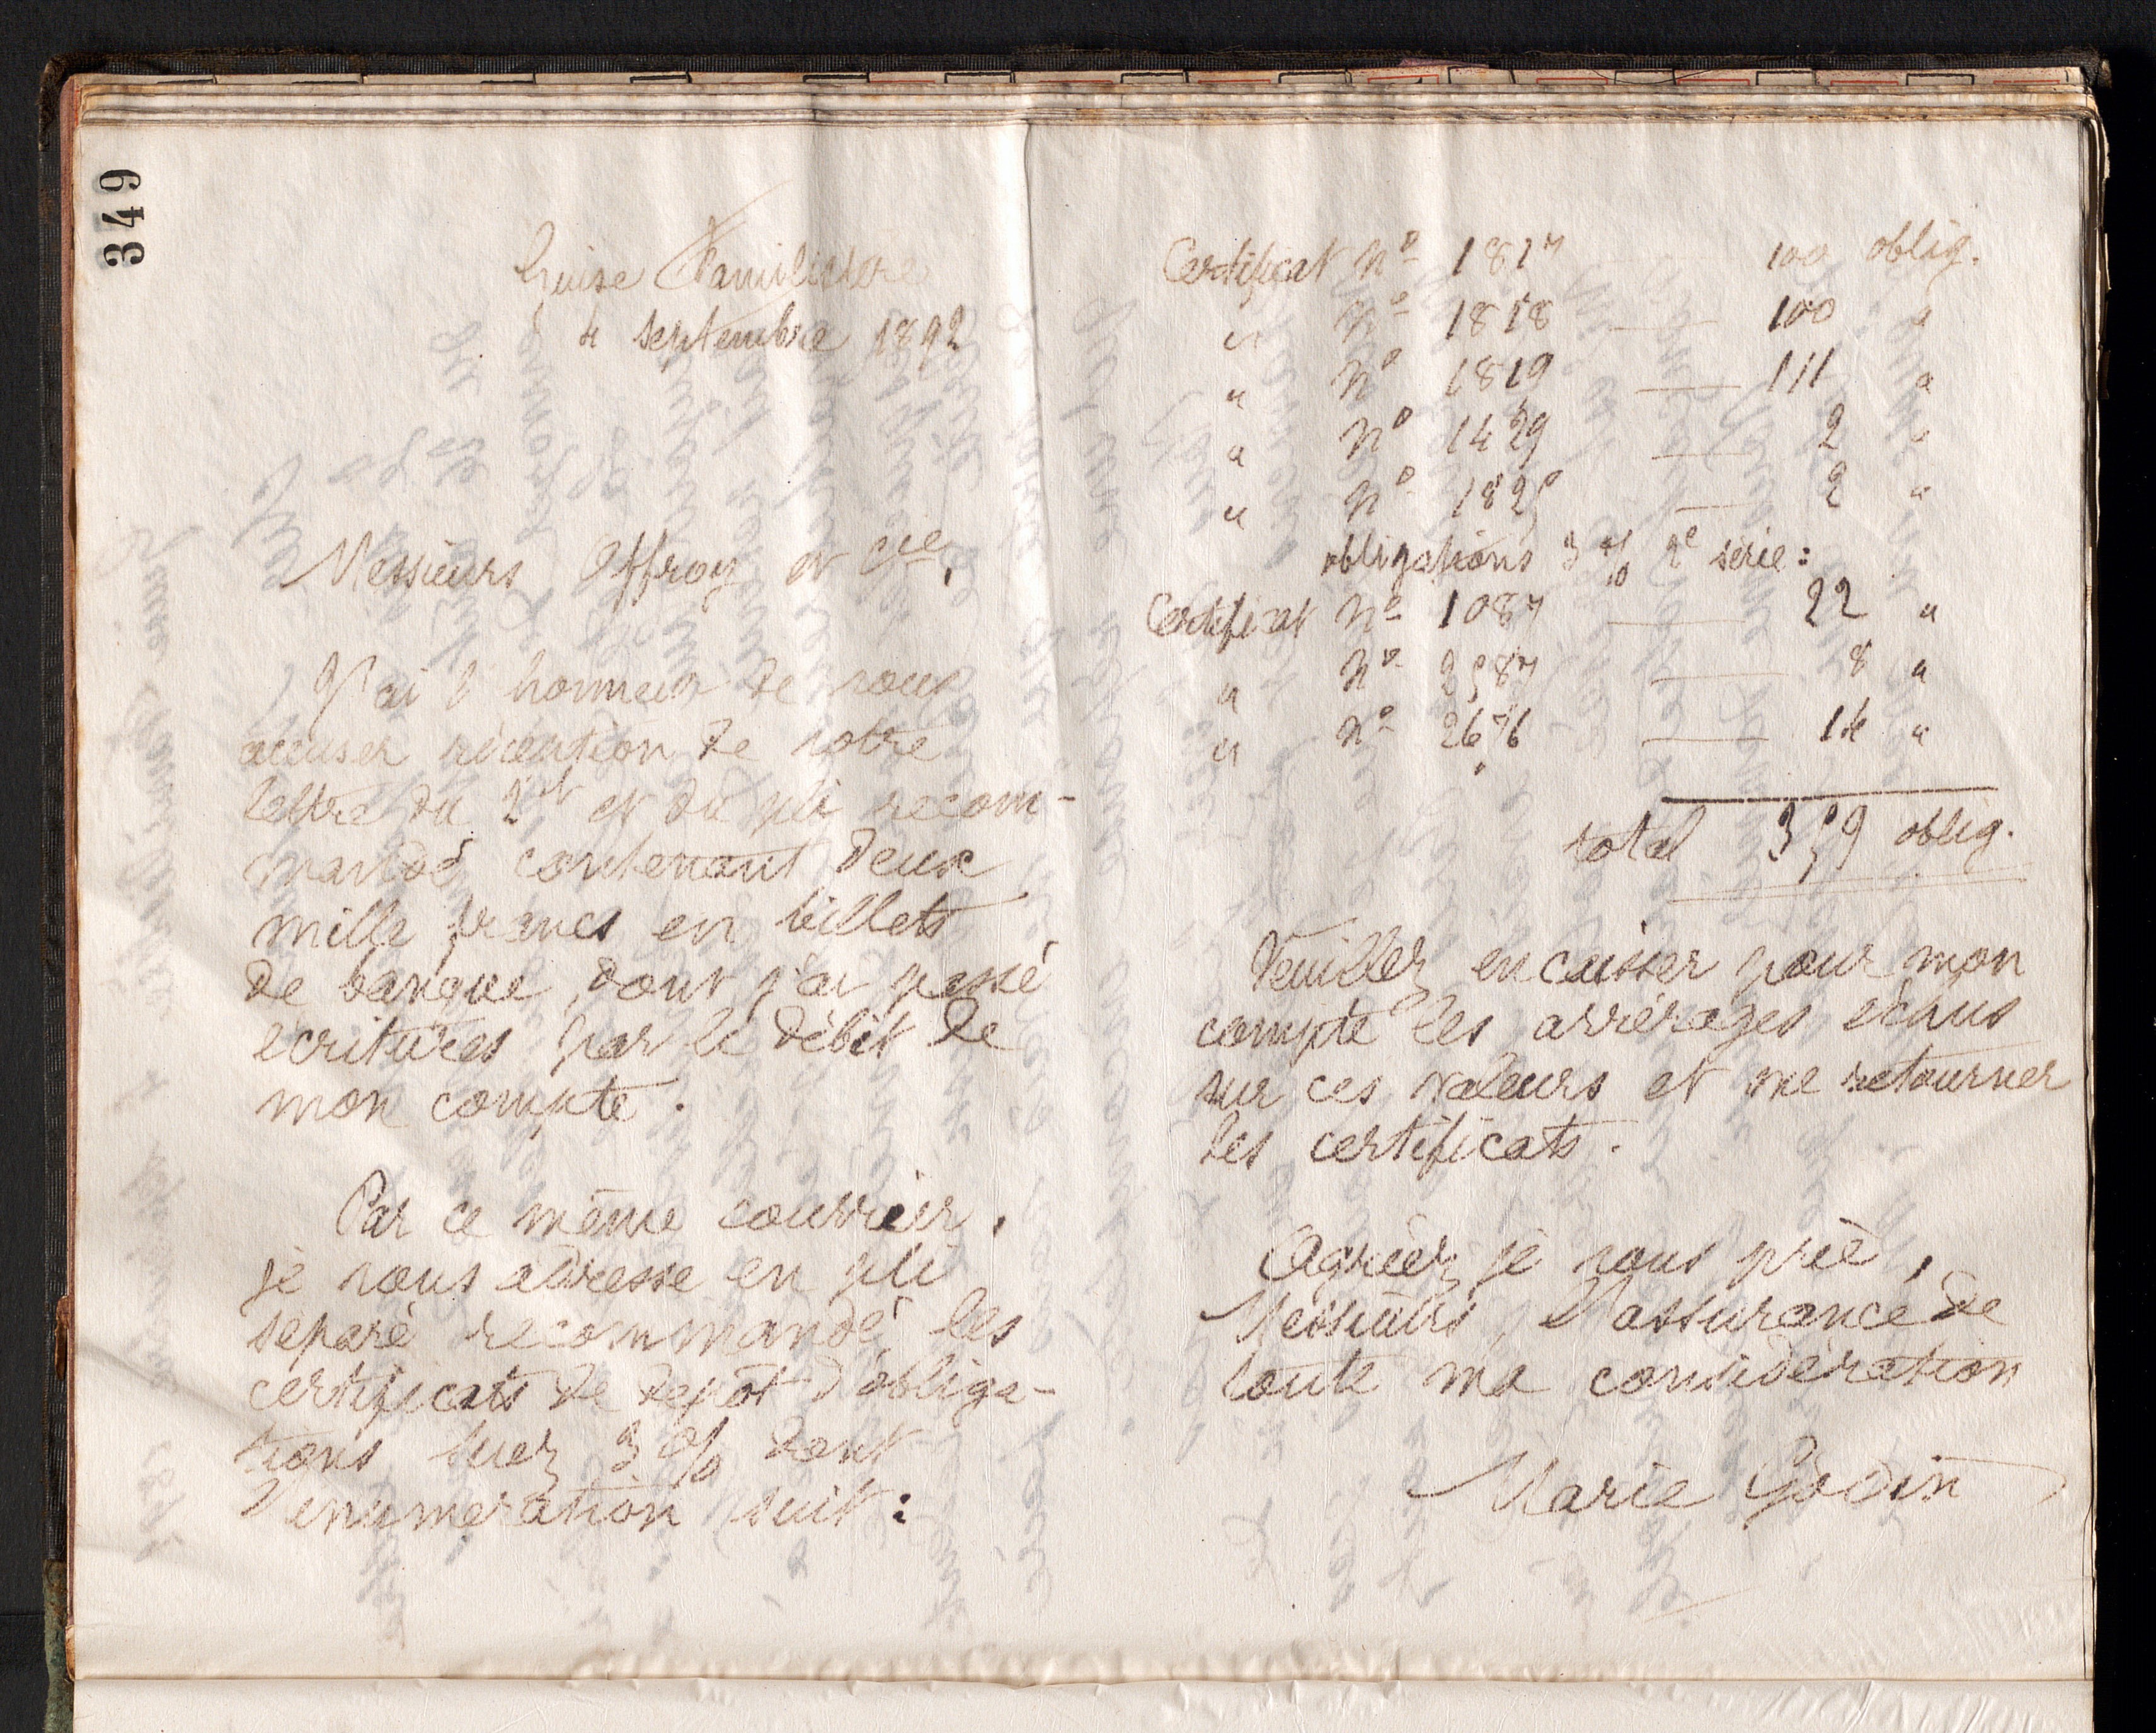 349
Guise Familistère
4 septembre 1892
Messieurs Offroy et Cie,
J'ai l'honneur de vous
accuser réception de votre
lettre du 2 ct et du pli recom-
mandé contenant deux
mille francs en billets
de banque, dont j'ai passé
écritures par le débit de
mon compte.
Par ce même courrier,
je vous adresse en pli
séparé recommandé les
certificats de dépôt d'obliga-
tions Suez 3 % dont
l'énumération suit :
Certificat No 1817 — 100 oblig.
" No 1818 — 100 "
" No 1819 — 111 "
" No 1429 — 2 "
" No 1825 — 2 "
obligations 3 % 2e série :
Certificat No 1087 — 22 "
" No 2587 — 8 "
" No 2676 — 14 "
total 359 oblig.
Veuillez encaisser pour mon
compte les arrérages échus
sur ces valeurs et me retourner
les certificats.
Agréez je vous prie,
Messieurs, l'assurance de
toute ma considération
Marie Godin